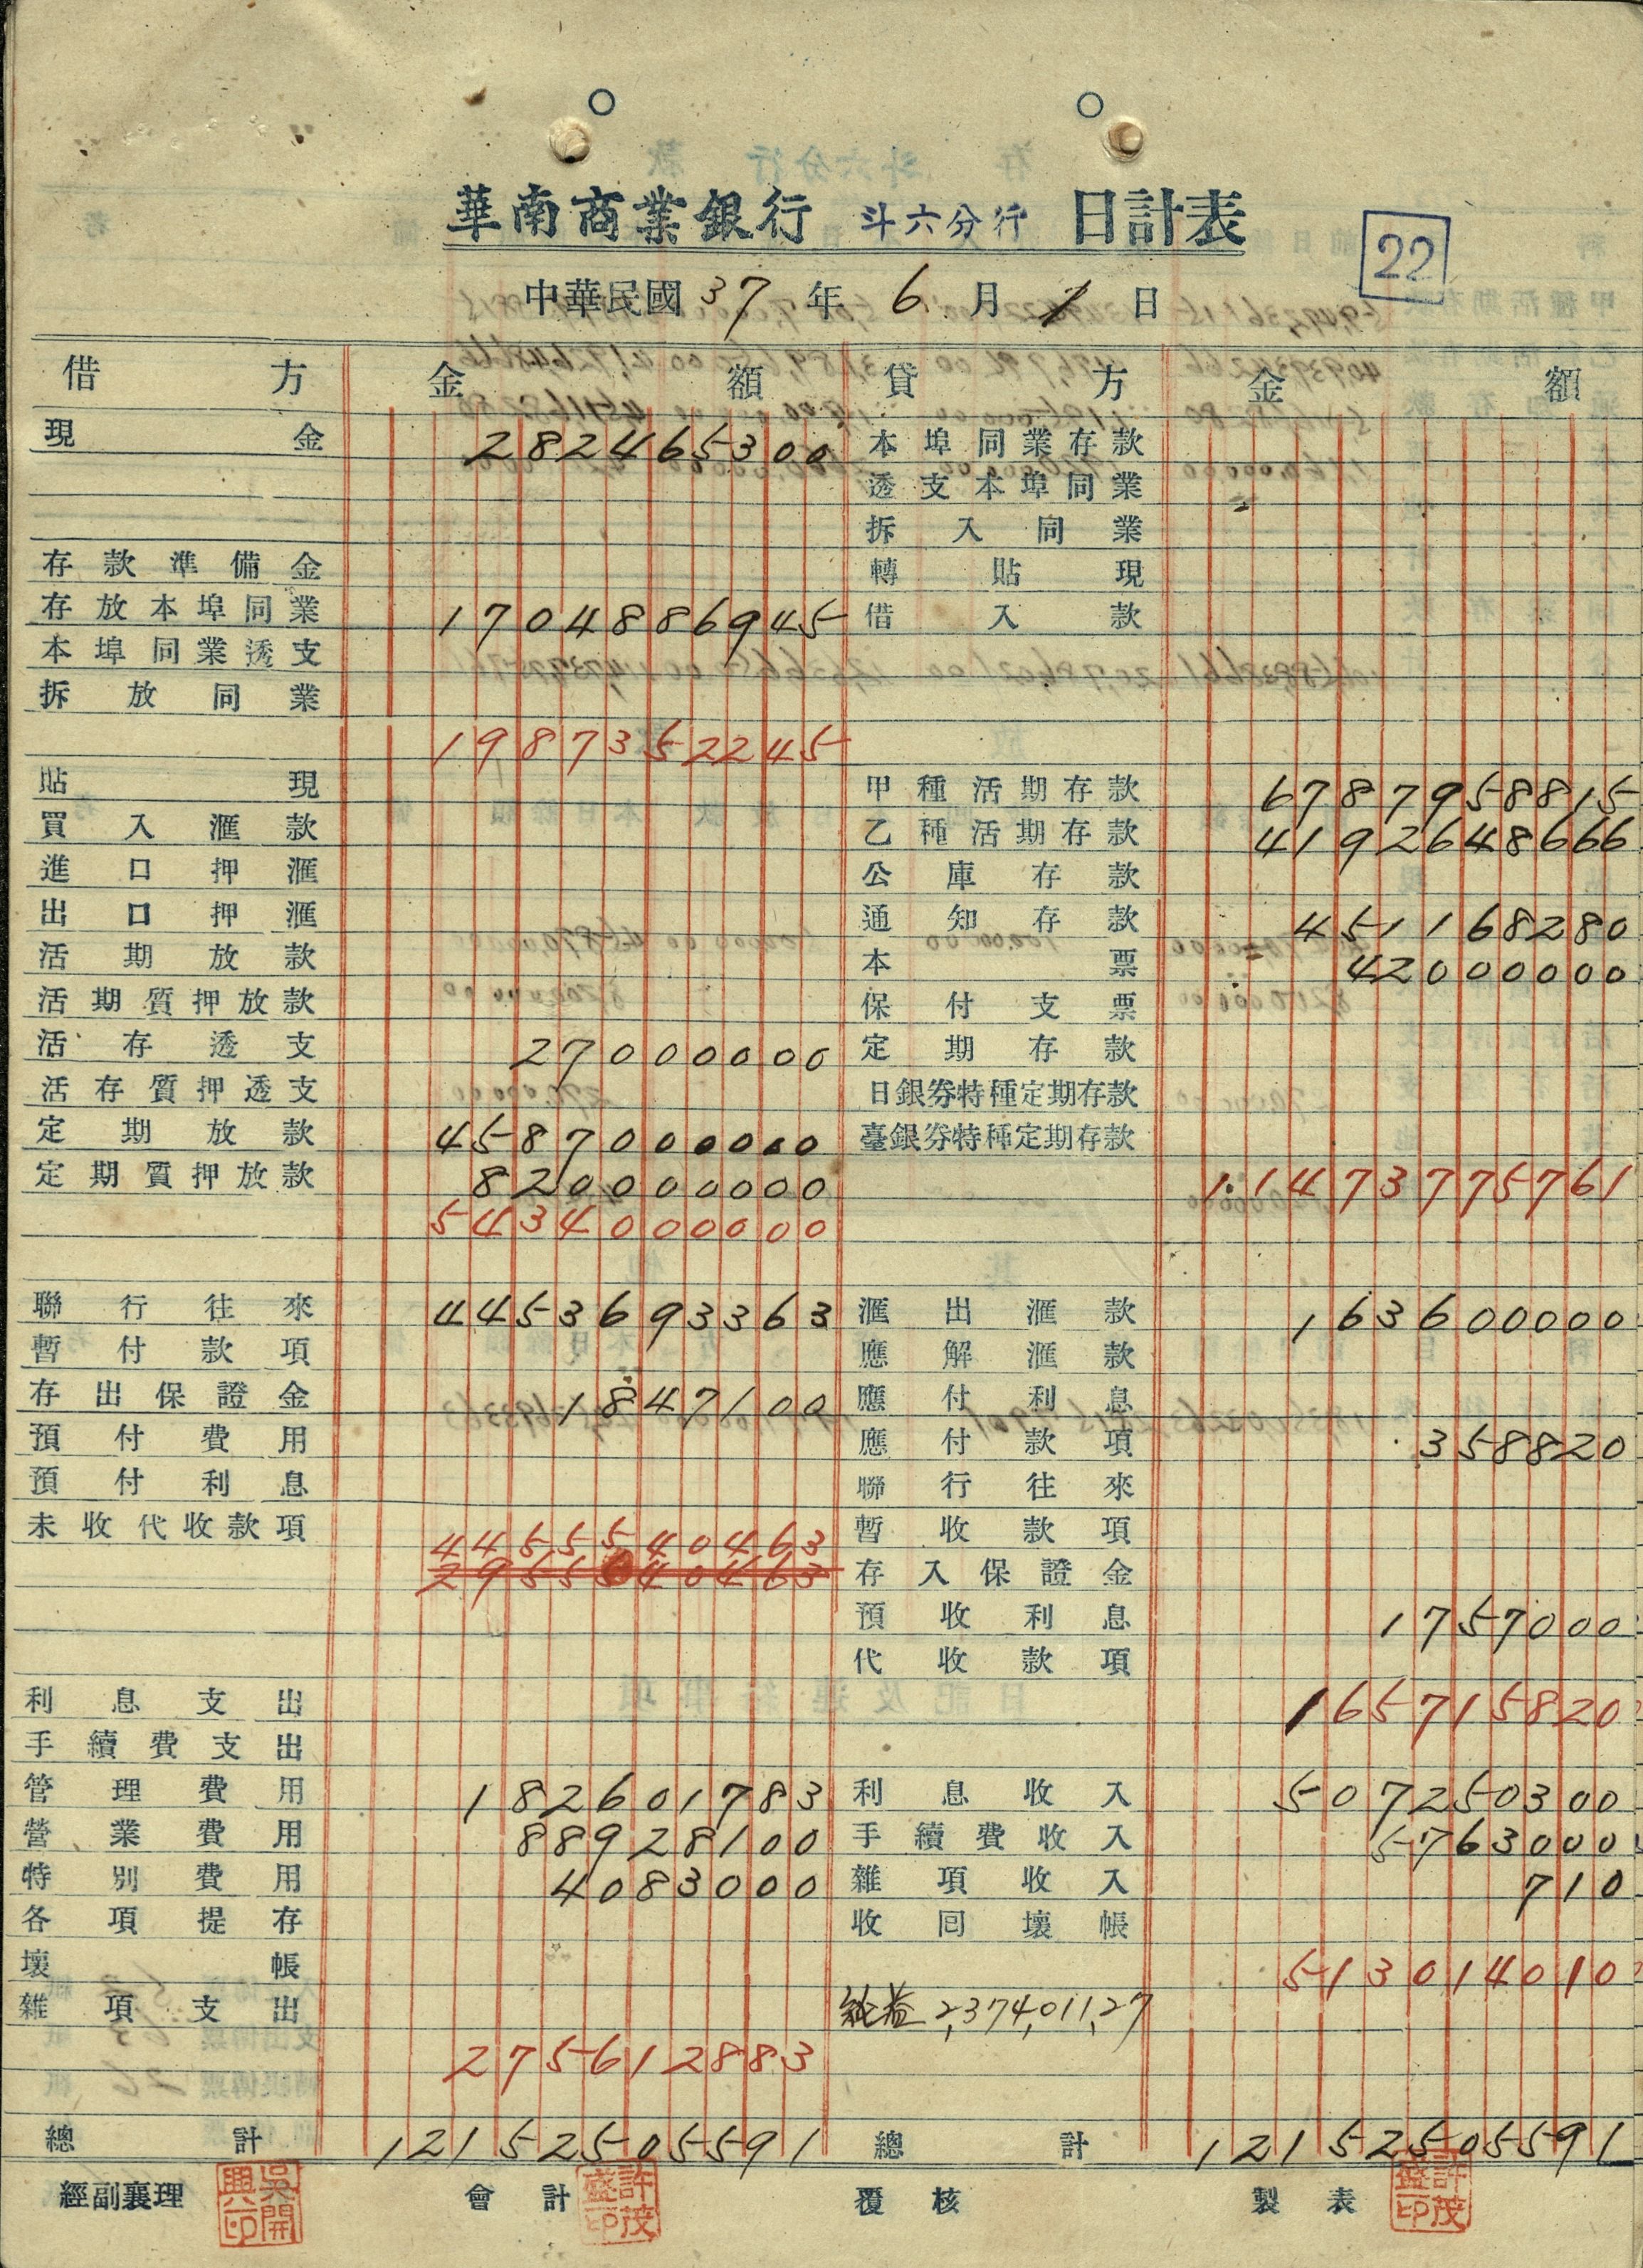 華南商業銀行 斗六分行 日計表
22
中華民國 37 年 6 月 1 日
借方 金額 貸方 金額
現金 282465300 本埠同業存款
透支本埠同業
拆入同業
存款準備金 轉貼現
存放本埠同業 1704886945 借入款
本埠同業透支
拆放同業
1987352245
貼現 甲種活期存款 6787958815
買入滙款 乙種活期存款 4192648666
進口押滙 公庫存款
出口押滙 通知存款 451168280
活期放款 本票 42000000
活期質押放款 保付支票
活存透支 27000000 定期存款
活存質押透支 日銀券特種定期存款
定期放款 4587000000 臺銀券特種定期存款
定期質押放款 820000000 11473775761
5434000000
聯行往來 4453693363 滙出滙款 163600000
暫付款項 應解滙款
存出保證金 1847100 應付利息
預付費用 應付款項 358820
預付利息 聯行往來
未收代收款項 4455540463 暫收款項
2955540463 存入保證金
預收利息 1757000
代收款項
利息支出 165715820
手續費支出
管理費用 182601783 利息收入 507250300
營業費用 88928100 手續費收入 5763000
特別費用 4083000 雜項收入 710
各項提存 收回壞帳
壞帳 513014010
雜項支出 純益 2,374,011,27
275612883
總計 12152505591 總計 12152505591
經副襄理 吳開興印 會計 許茂盛印 覆核 製表 許茂盛印